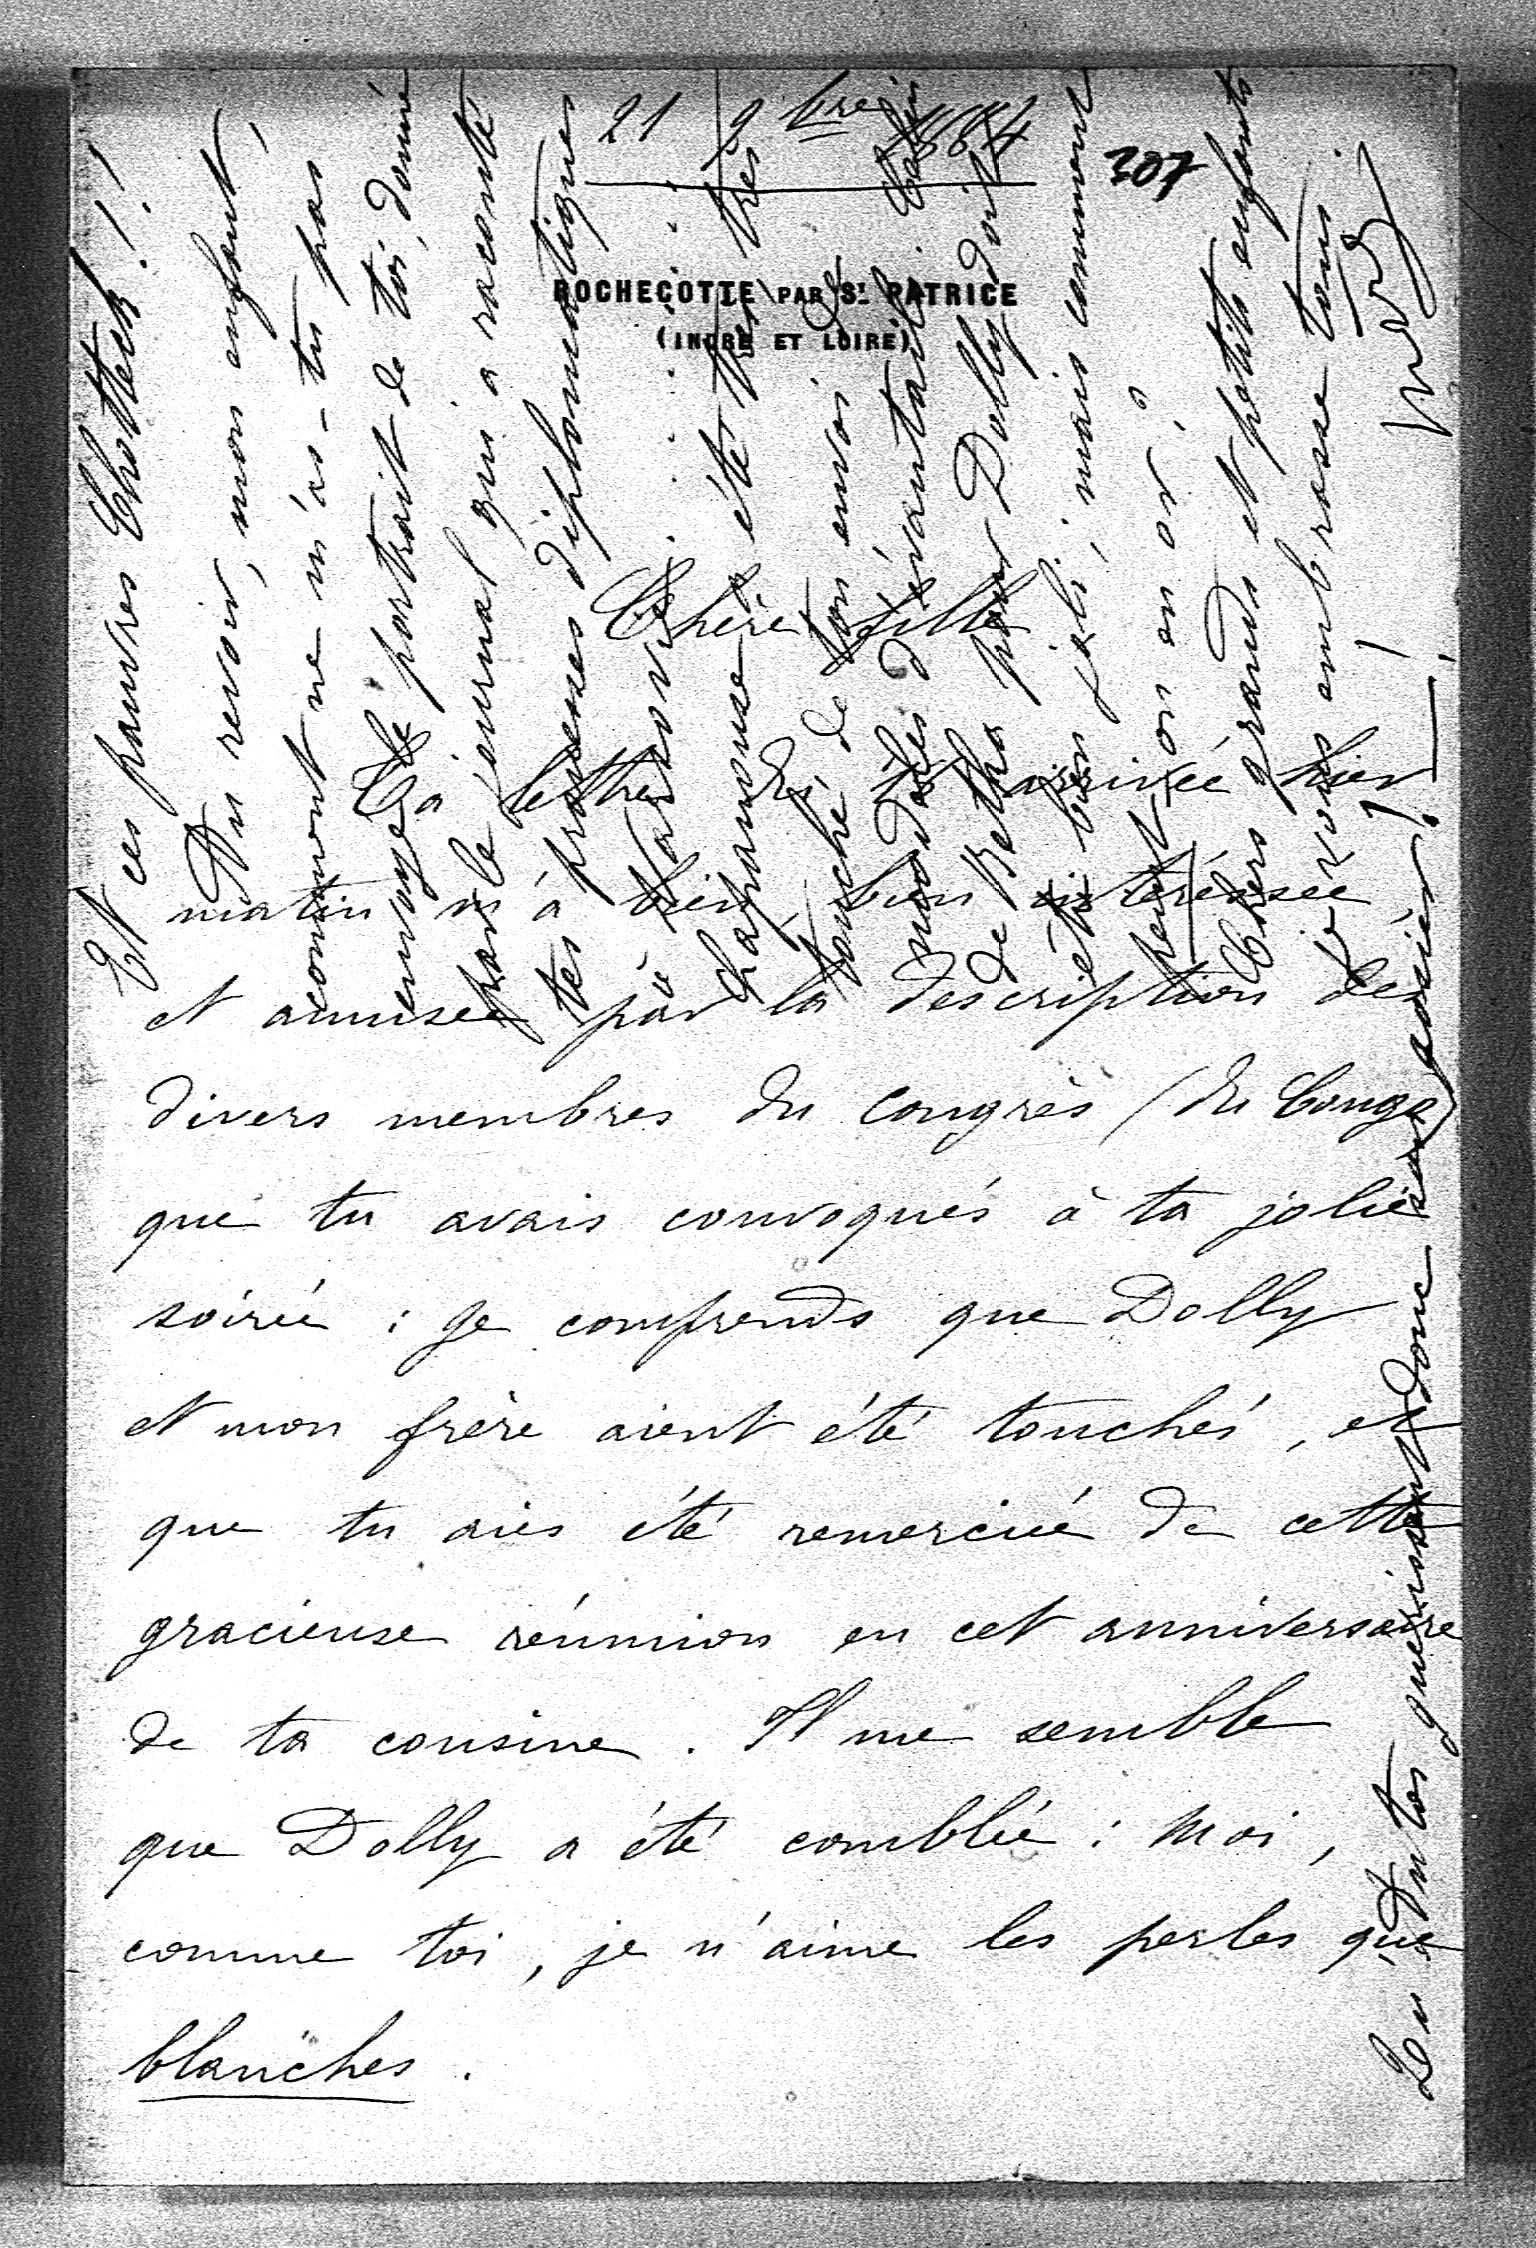 21 9bre 1884
307
ROCHECOTTE PAR St. PATRICE
(INDRE ET LOIRE)
Chère fille
Ta lettre du 18 arrivée hier
matin m'a bien, bien intéressée
et amusée par la description des
divers membres du congrès (du Congo)
que tu avais convoqués à ta jolie
soirée : Je comprends que Dolly
et mon frère aient été touchés, et
que tu aies été remerciée de cette
gracieuse réunion en cet anniversaire
de ta cousine. Il me semble
que Dolly a été comblée : Moi,
comme toi, je n'aime les perles que
blanches.
Et ces pauvres Chotteck !!!
Au revoir, mon enfant,
comment ne m'as-tu pas
envoyé le portrait de toi, donné
par le journal qui a raconté
tes prouesses diplomatiques
à
a été très
touché de ton envoi de
modèles d'éventail. Celui
de Betka pour Dolly doit
être bien joli, mais comment
peut-on en or ?
Chers grands et petits enfants
je vous embrasse tous.
En as-tu guérissant donc